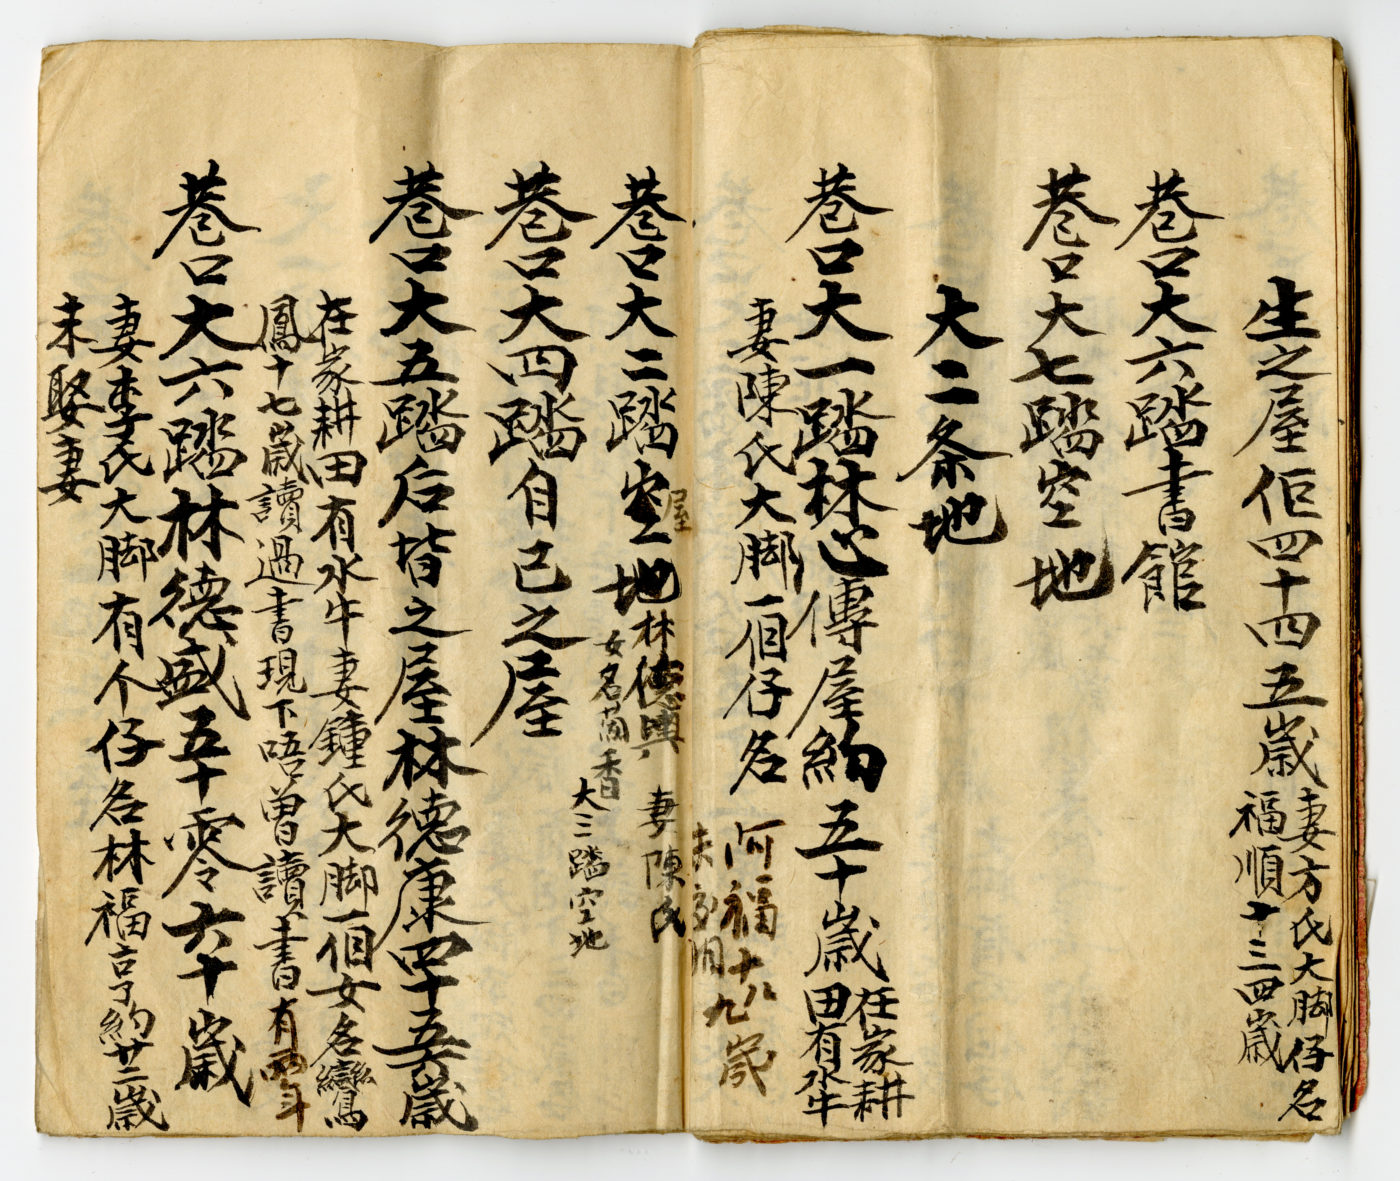 生之屋佢四十四五歲妻方氏大脚仔名
福順十三四歲
巷口大六踏書館
巷口大七踏空地
大二条地
巷口大一踏林心傳屋約五十歲在家耕
田有水牛
妻陳氏大脚一個仔名阿福十八九歲
未
巷口大二踏空地林德興 妻陳氏
屋
女名蘭香
大三踏空地
巷口大四踏自己之屋
巷口大五踏后皆之屋林德康四十五六歲
在家耕田有水牛妻鍾氏大脚一個女名鸞
鳳十七歲讀過書現下唔曾讀書有兩年
巷口大六踏林德盛五十零六十歲
妻李氏大脚有个仔名林福亨約廿二歲
未娶妻